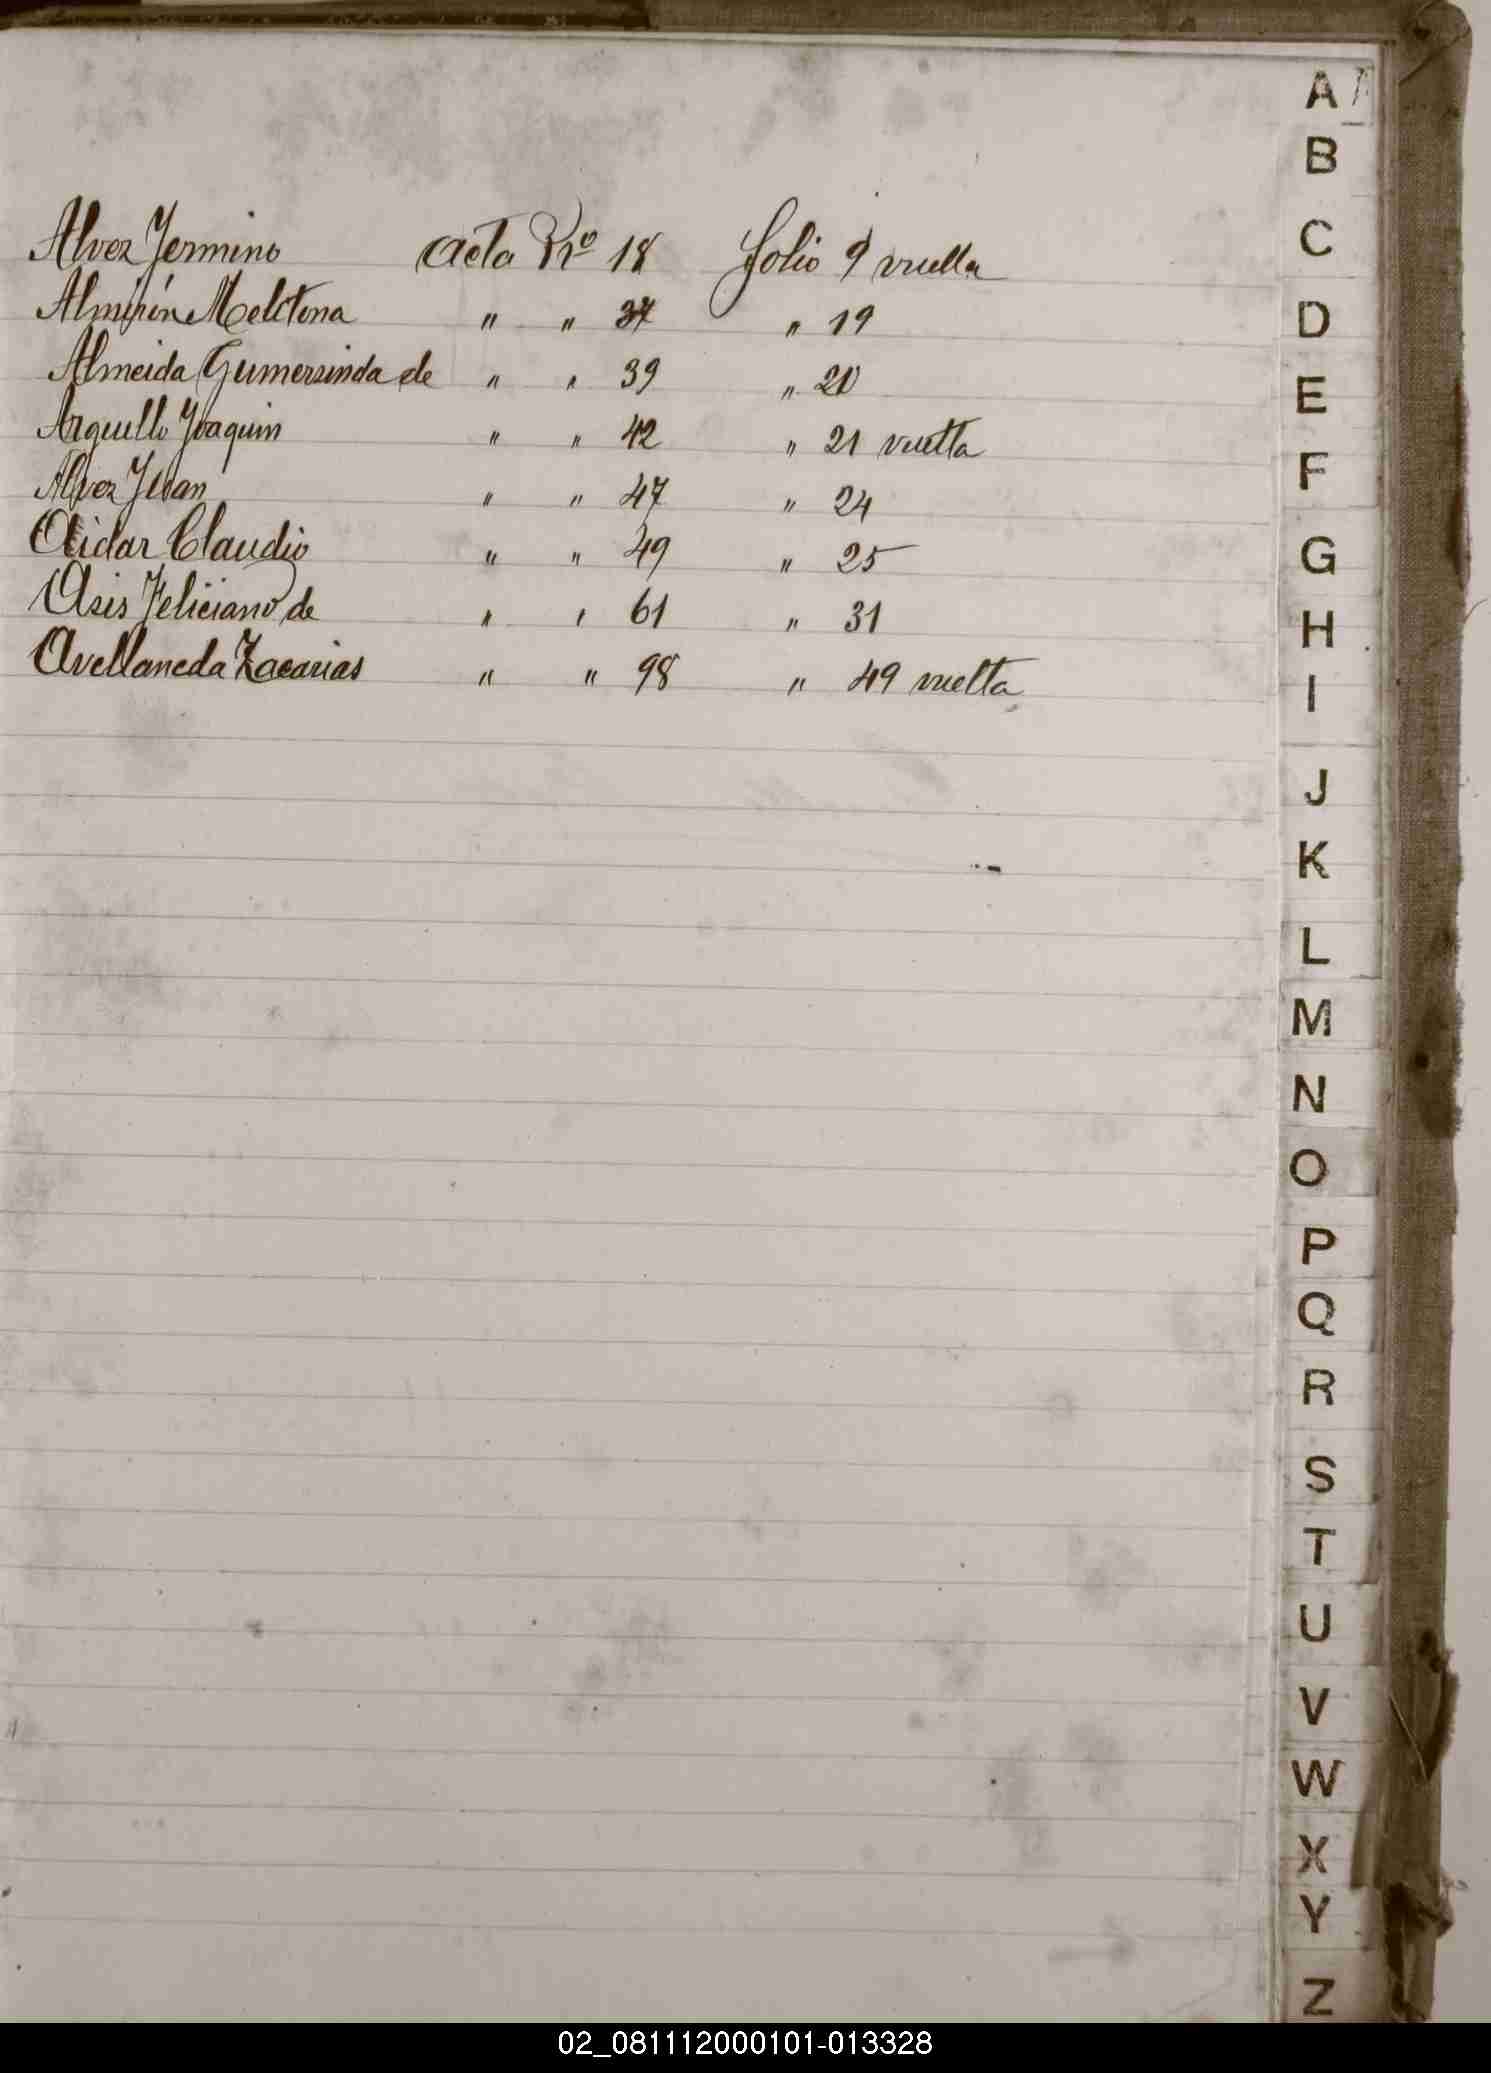 Alvez Fermino Acta Nº 18 folio 9 vuelta
Almirón Melitona " " 37 " 19
Almeida Gumersinda de " " 39 " 20
Arguello Joaquin " " 42 " 21 vuelta
Alvez Juan " " 47 " 24
Aidar Claudio " " 49 " 25
Asis Feliciano de " " 61 " 31
Avellaneda Zacarias " " 98 " 49 vuelta
A
B
C
D
E
F
G
H
I
J
K
L
M
N
O
P
Q
R
S
T
U
V
W
X
Y
Z
02_081112000101-013328